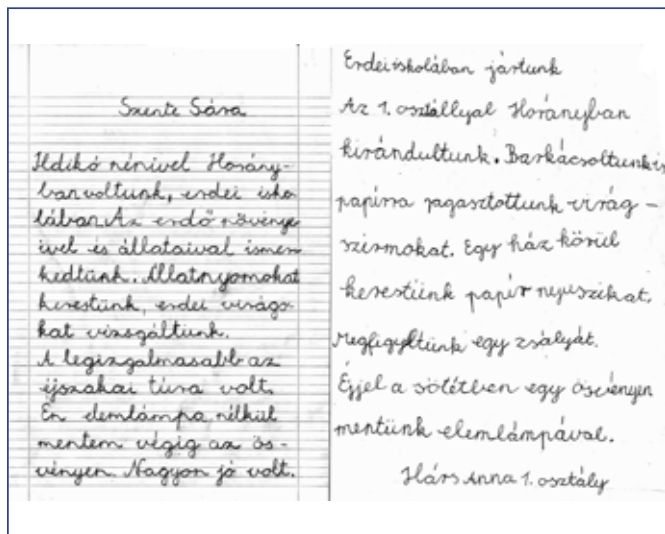 Szente Sára
Ildikó nénivel Horány-
ban voltunk, erdei isko
lában. Az erdő növénye
ivel és állataival ismer
kedtünk. Állatnyomokat
kerestünk, erdei virágo
kat vizsgáltunk.
A legizgalmasabb az
éjszakai túra volt.
Én elemlámpa nélkül
mentem végig az ös-
vényen. Nagyon jó volt.
Erdei iskolában jártunk
Az 1. osztállyal Horányban
kirándultunk. Barkácsoltunk is
papírra ragasztottunk virág-
szirmokat. Egy ház körül
kerestünk papír nyuszikat.
Megfigyeltünk egy zsályát.
Éjjel a sötétben egy ösvényen
mentünk elemlámpával.
Hárs Anna 1. osztály